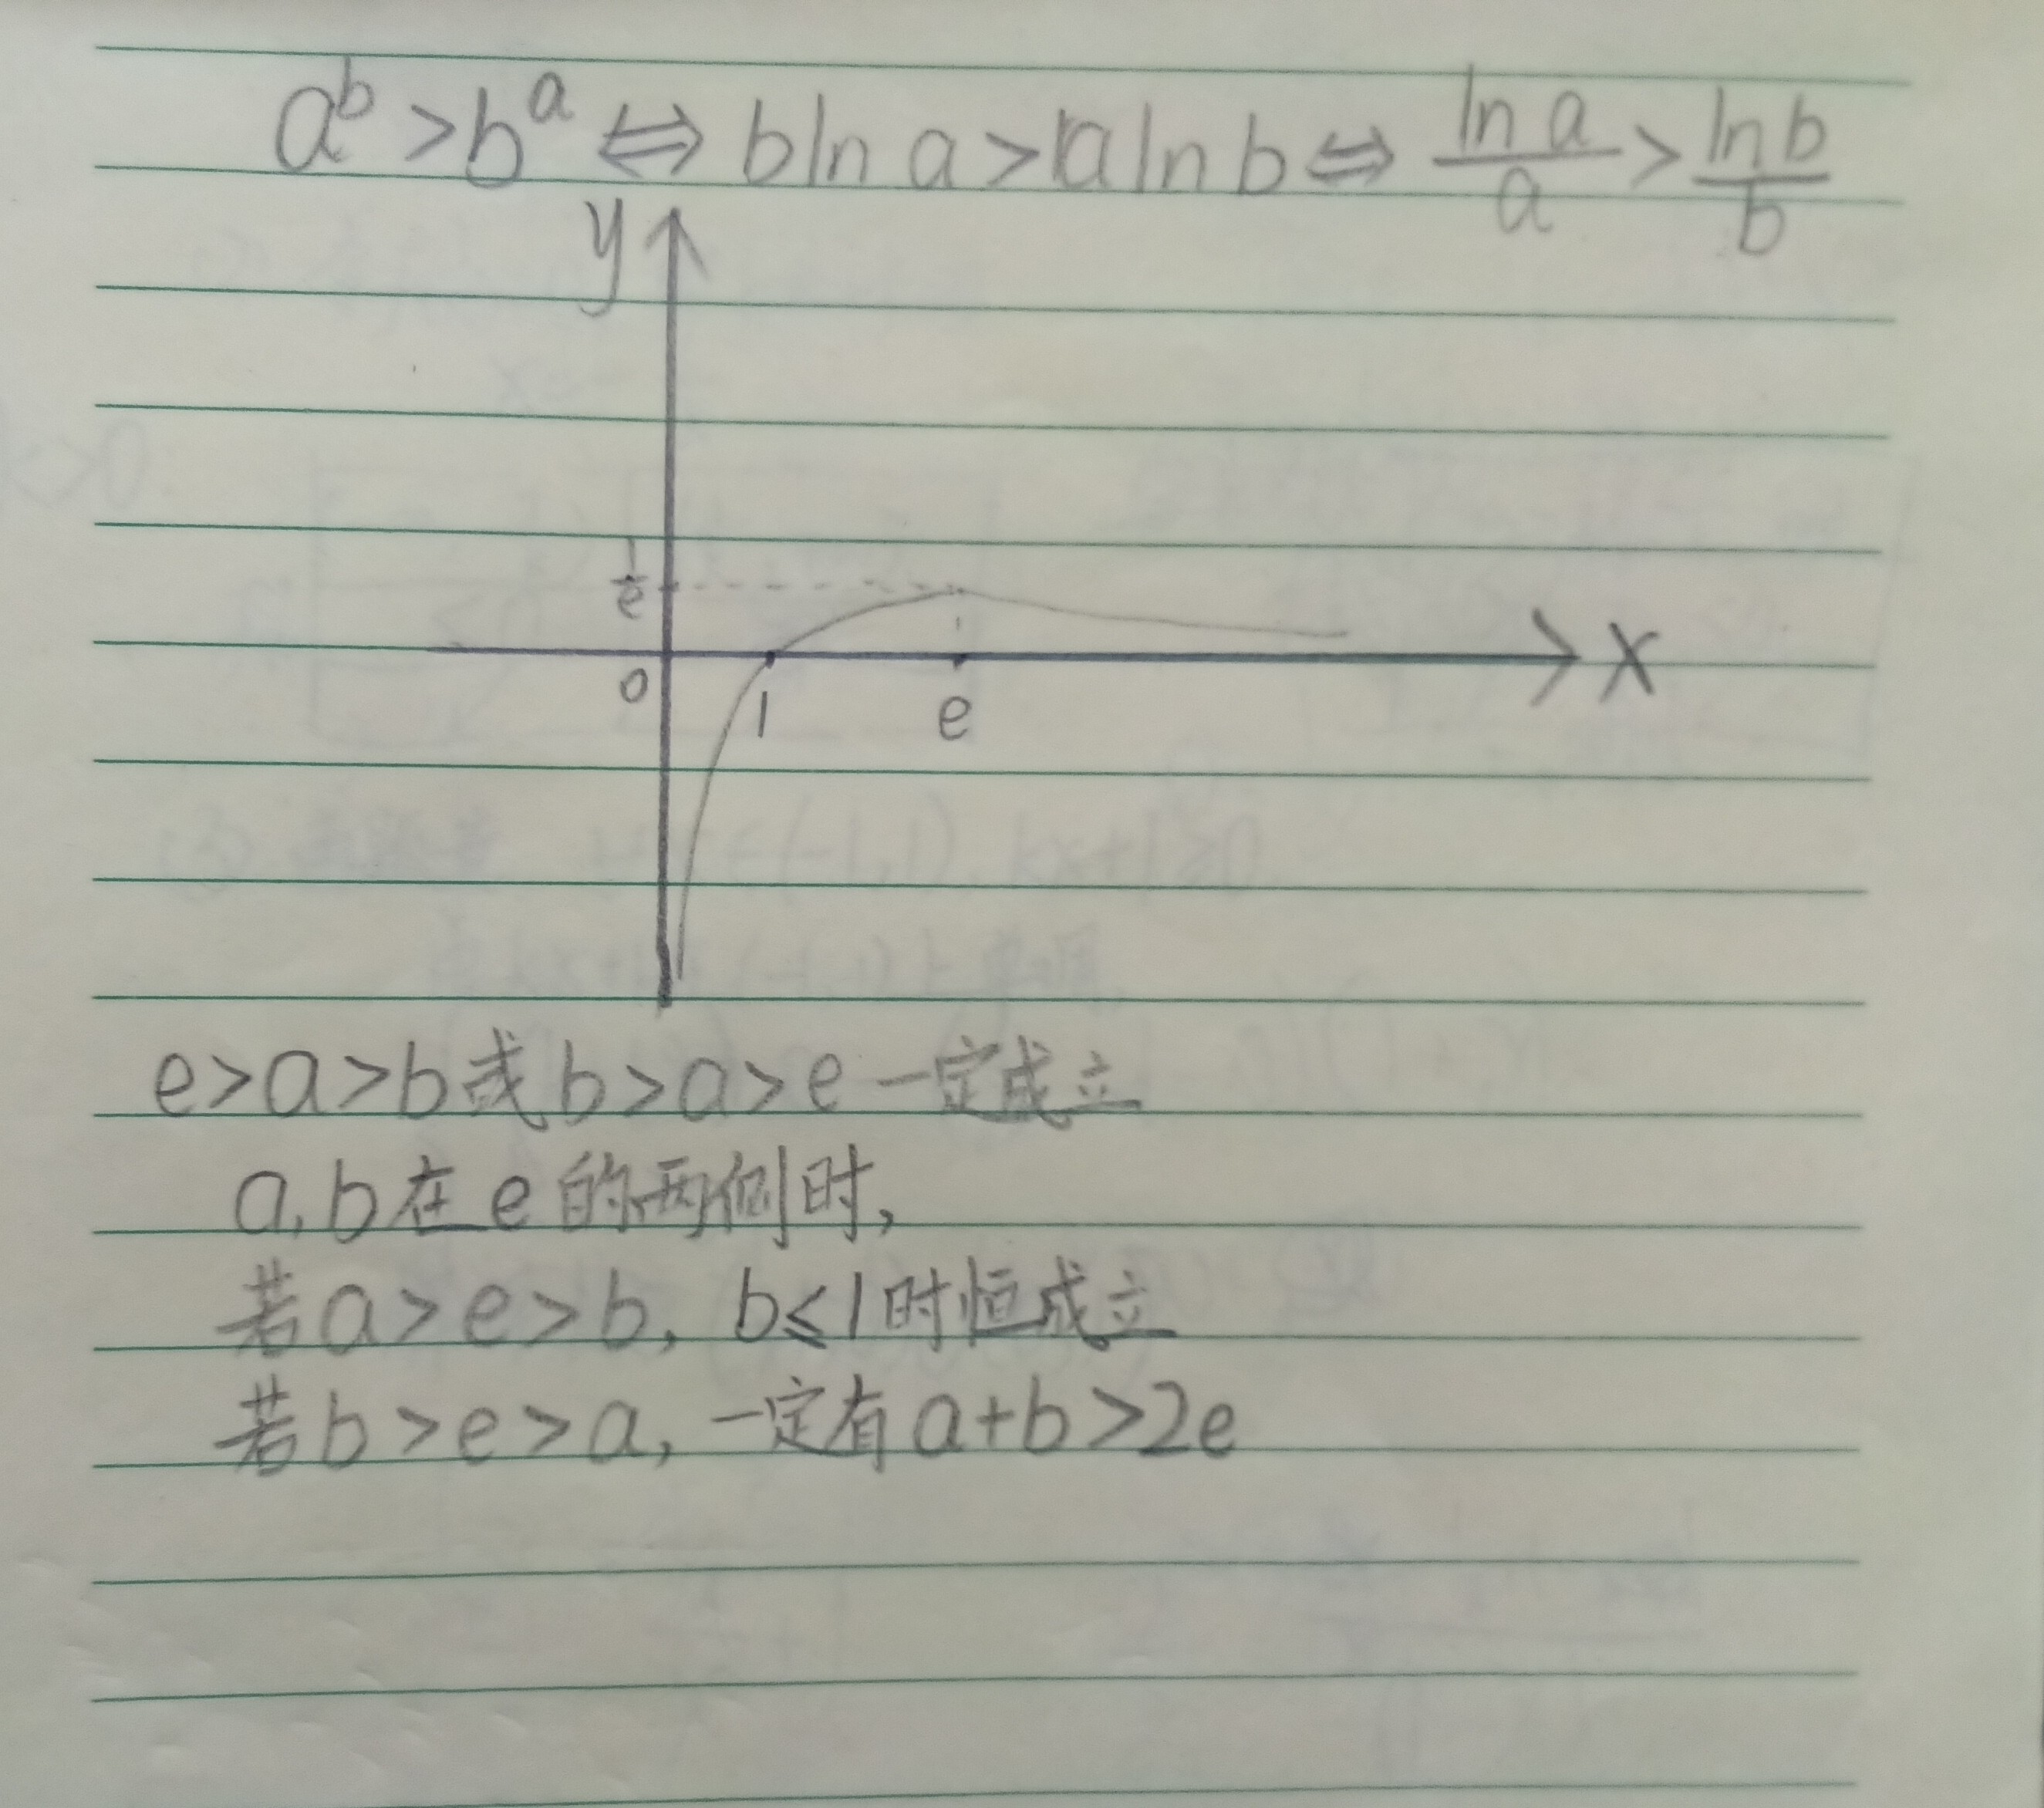 a^b > b^a ⇔ b ln a > a ln b ⇔ ln a / a > ln b / b
y
1/e
0 1 e x
e>a>b或b>a>e一定成立
a,b在e的两侧时,
若a>e>b, b≤1时恒成立
若b>e>a, 一定有a+b>2e